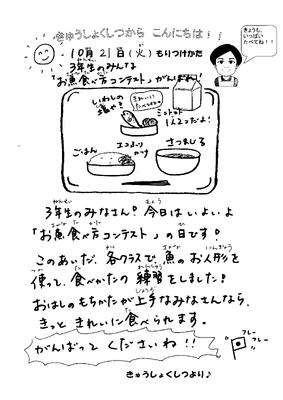 きゅうしょくしつから こんにちは！！
きょうも、
いっぱい
たべてね！！
10月21日(火) もりつけかた
3年生のみんな
「お魚食べ方コンテスト」がんばれ！
いわしの
塩やき
きれいに
たべてみてね
ミニトマト
1人2つだよ！
ごはん
かけ
さつまじる
3年生のみなさん！今日はいよいよ
「お魚食べ方コンテスト」の日です！
このあいだ、各クラスで魚のお人形を
使って、食べかたの練習をしました！
おはしのもちかたが上手なみなさんなら、
きっときれいに食べられます。
がんばってくださいね！！
フレー
フレー
きゅうしょくしつより♪